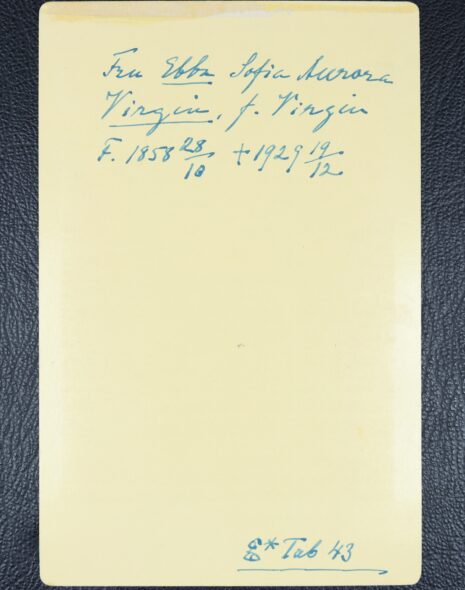 Fru Ebba Sofia Aurora
Virgin, f. Virgin
F. 1858 28/10 + 1929 19/12
* Tab 43